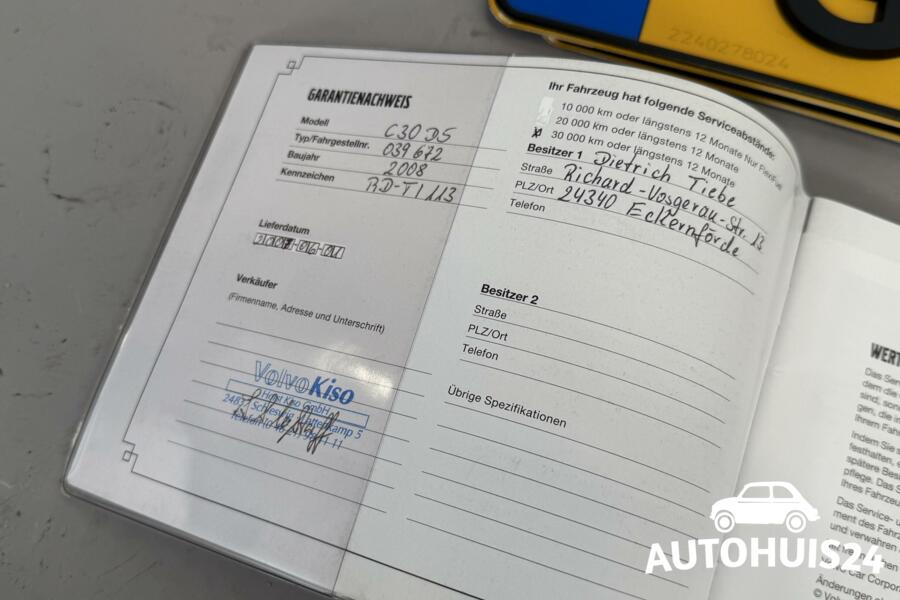 2240278024
GARANTIENACHWEIS
Modell C30 D5
Typ/Fahrgestellnr. 039672
Baujahr 2008
Kennzeichen RD-TI 113
Lieferdatum
2007-06-01
Verkäufer
(Firmenname, Adresse und Unterschrift)
VolvoKiso
Horst Kiso GmbH
Schleswig
Ihr Fahrzeug hat folgende Serviceabstände:
10 000 km oder längstens 12 Monate Nur FlexiFuel
20 000 km oder längstens 12 Monate
x 30 000 km oder längstens 12 Monate
Besitzer 1 Dietrich Tiebe
Straße Richard-Vosgerau-Str. 13
PLZ/Ort 24340 Eckernförde
Telefon
Besitzer 2
Straße
PLZ/Ort
Telefon
Übrige Spezifikationen
WERT
Das Ser
dem die
sind, son
gen, die in
Ihrem Fah
Indem Sie s
festhalten, e
spätere Besi
pflege. Das S
Ihres Fahrzeu
Das Service- u
ment des Fahrz
und verwahren
Car Corpor
Änderungen
© Volv
AUTOHUIS24